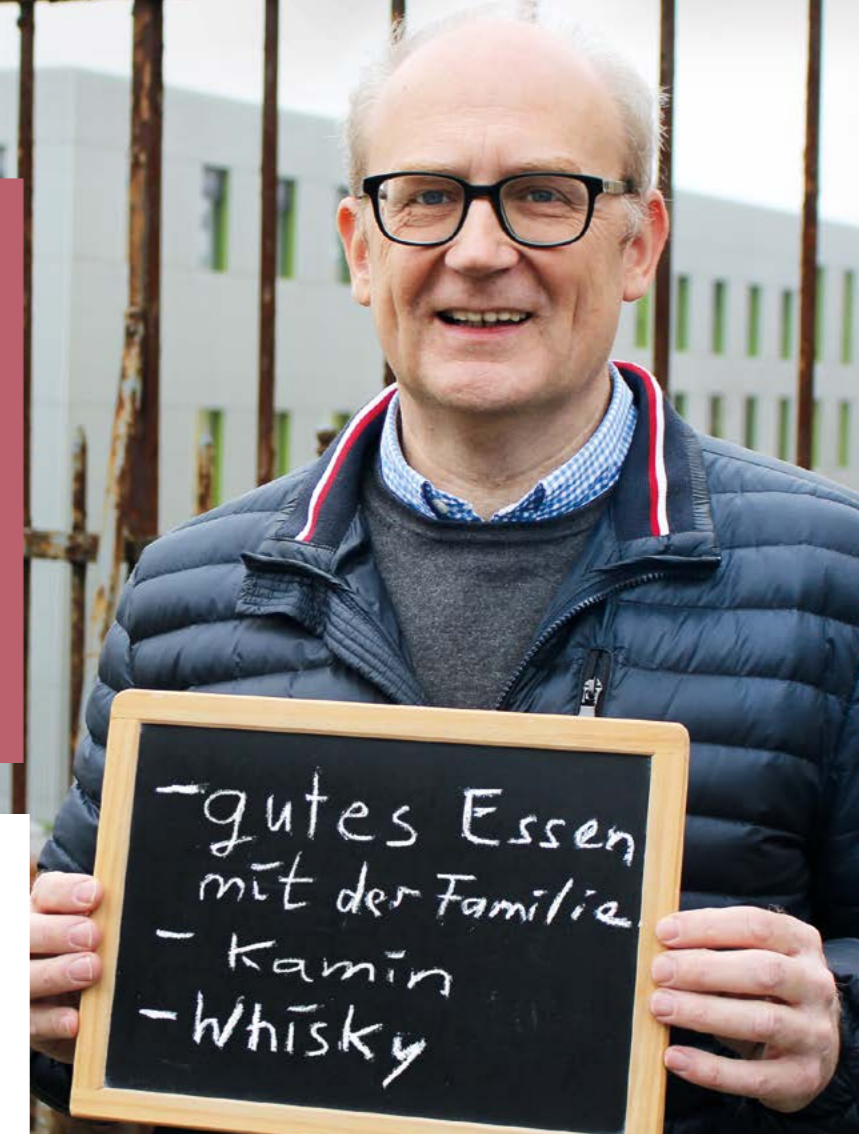 - gutes Essen
mit der Familie
- Kamin
- Whisky